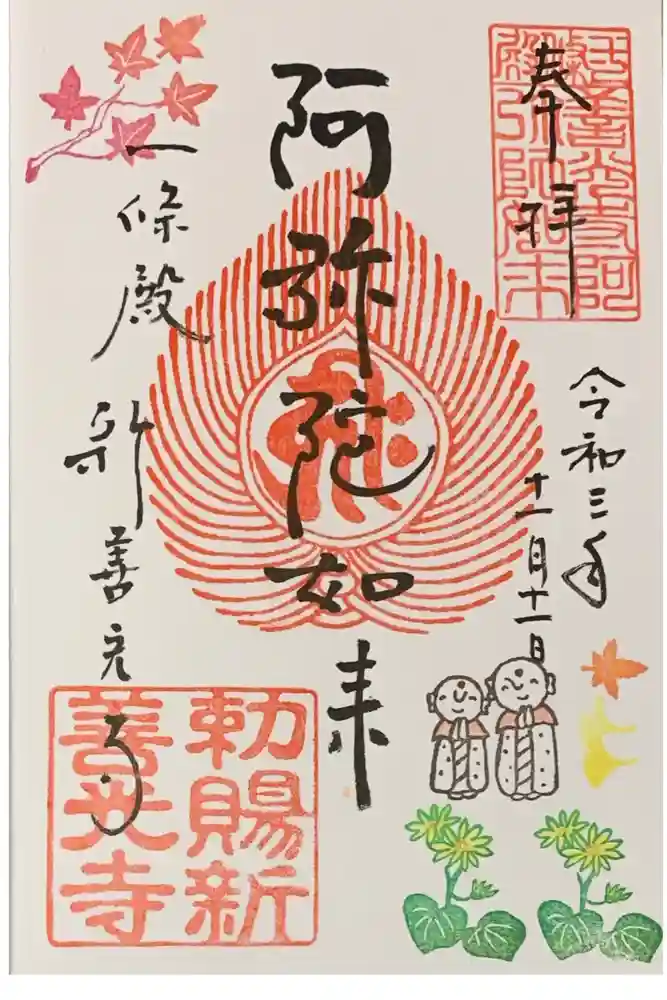 奉拝
令和三年
十一月十一日
阿弥陀如来
一條殿
新善光寺
勅賜新
善光寺